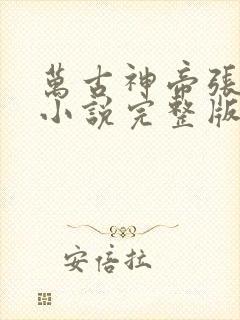 萬古神帝張
小説完整版
安倍拉